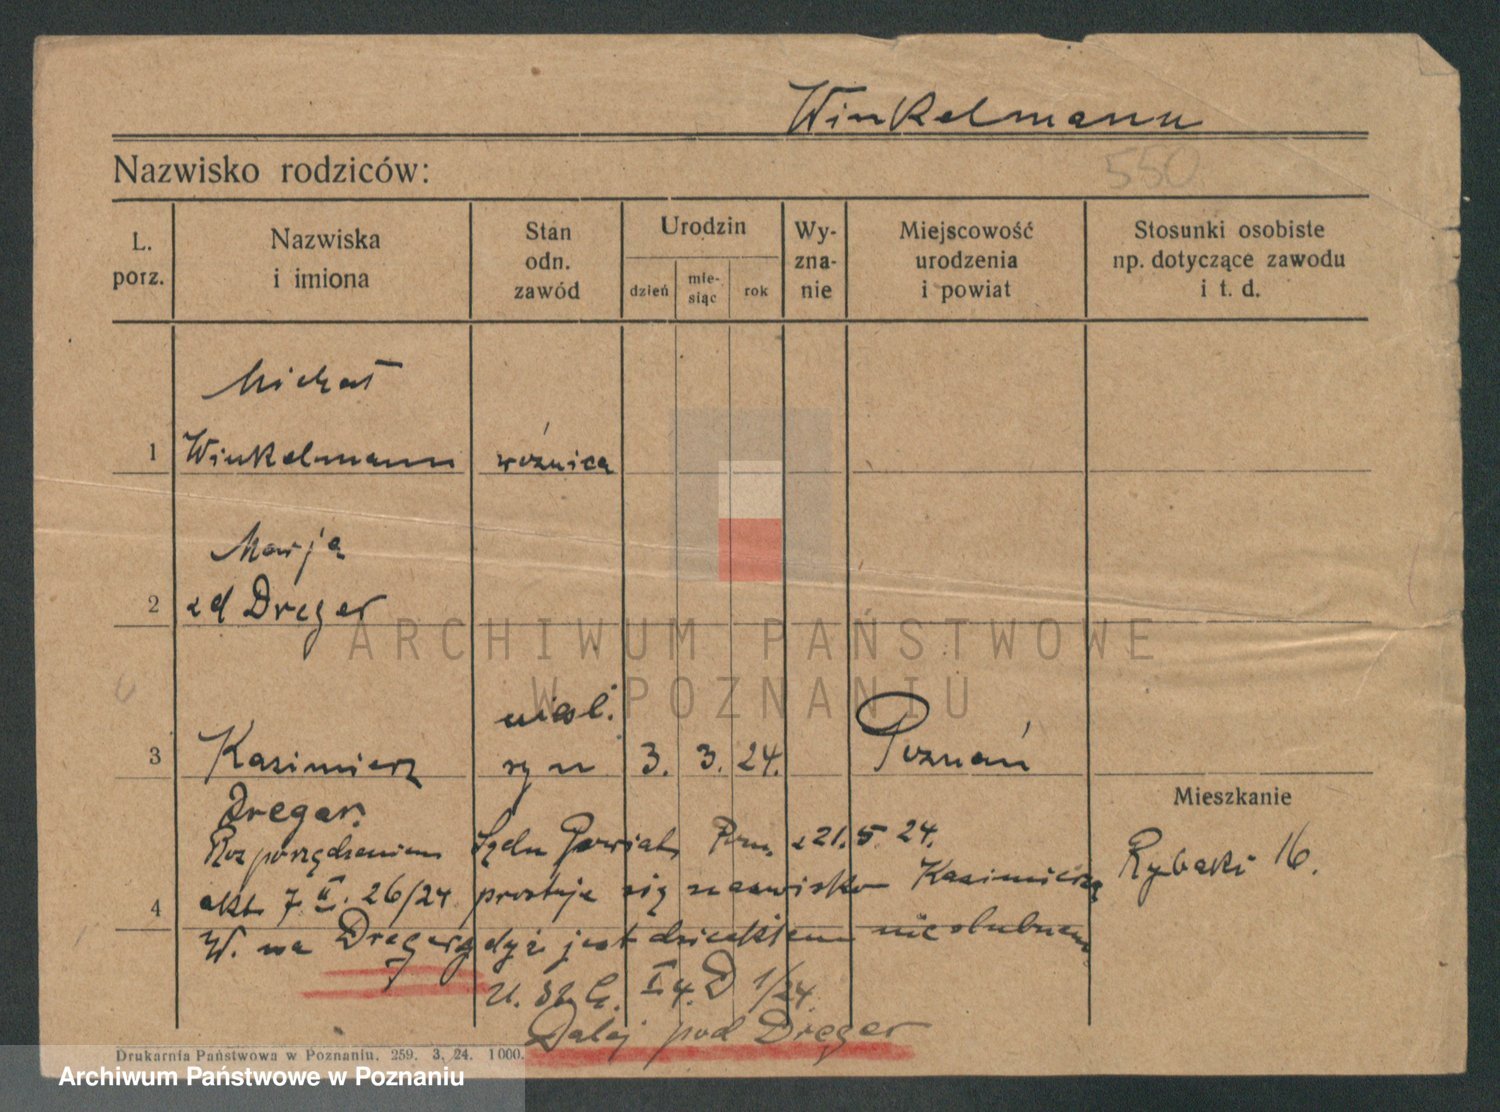 Winkelmann
Nazwisko rodziców:
550
L. porz.
Nazwiska i imiona
Stan odn. zawód
Urodzin
dzień
mie-
siąc
rok
Wy-
zna-
nie
Miejscowość urodzenia i powiat
Stosunki osobiste np. dotyczące zawodu i t. d.
Michał
1 Winkelmann woźnica
Marja
2 zd Dreger
niesl.
3 Kazimierz syn 3. 3. 24. Poznań
Dreger.
Mieszkanie
Rozporządzeniem Sądu Powiat. Pozn. z 21. 5. 24.
Rybaki 16.
akt. 7 II. 26/24 prostuje się nazwisko Kazimierza
4
W. na Dreger gdyż jest dzieckiem nieślubnem
I 4. D 1/24.
Dalej pod Dreger
Drukarnia Państwowa w Poznaniu. 259. 3. 24. 1000.
ARCHIWUM PAŃSTWOWE
W POZNANIU
Archiwum Państwowe w Poznaniu